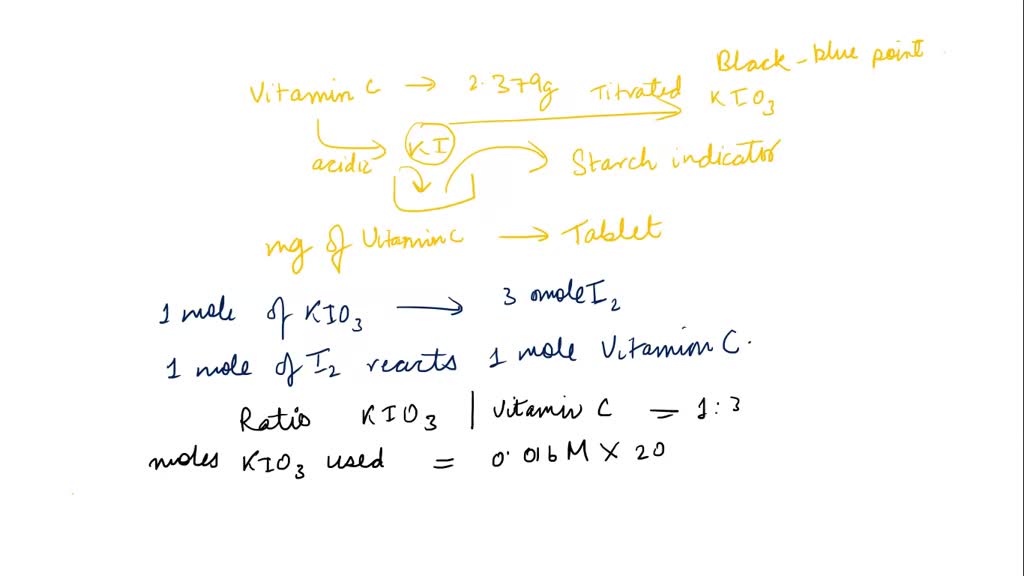 Black-blue point
Vitamin C → 2.379g Titrated KIO3
acidic KI Starch indicator
mg of Vitamin C → Tablet
1 mole of KIO3 → 3 mole I2
1 mole of I2 reacts 1 mole Vitamin C.
Ratio KIO3 | Vitamin C = 1:3
moles KIO3 used = 0.016M X 20